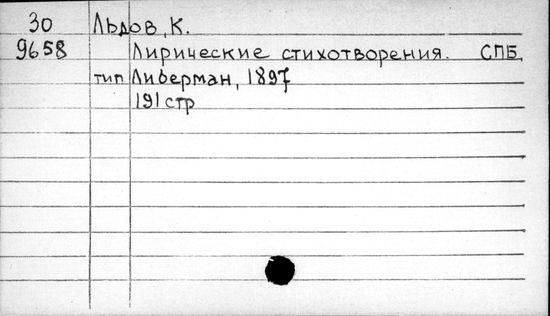 30 Льдов, К.
9658 Лирические стихотворения. СПБ,
тип Либерман, 1897
191 стр